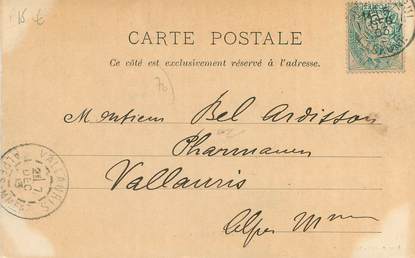 15 €
CARTE POSTALE
Ce côté est exclusivement réservé à l'adresse.
70
Monsieur Bel Ardisson
Pharmacien
Vallauris
Alpes Mmes
VALLAURIS
7
DEC
03